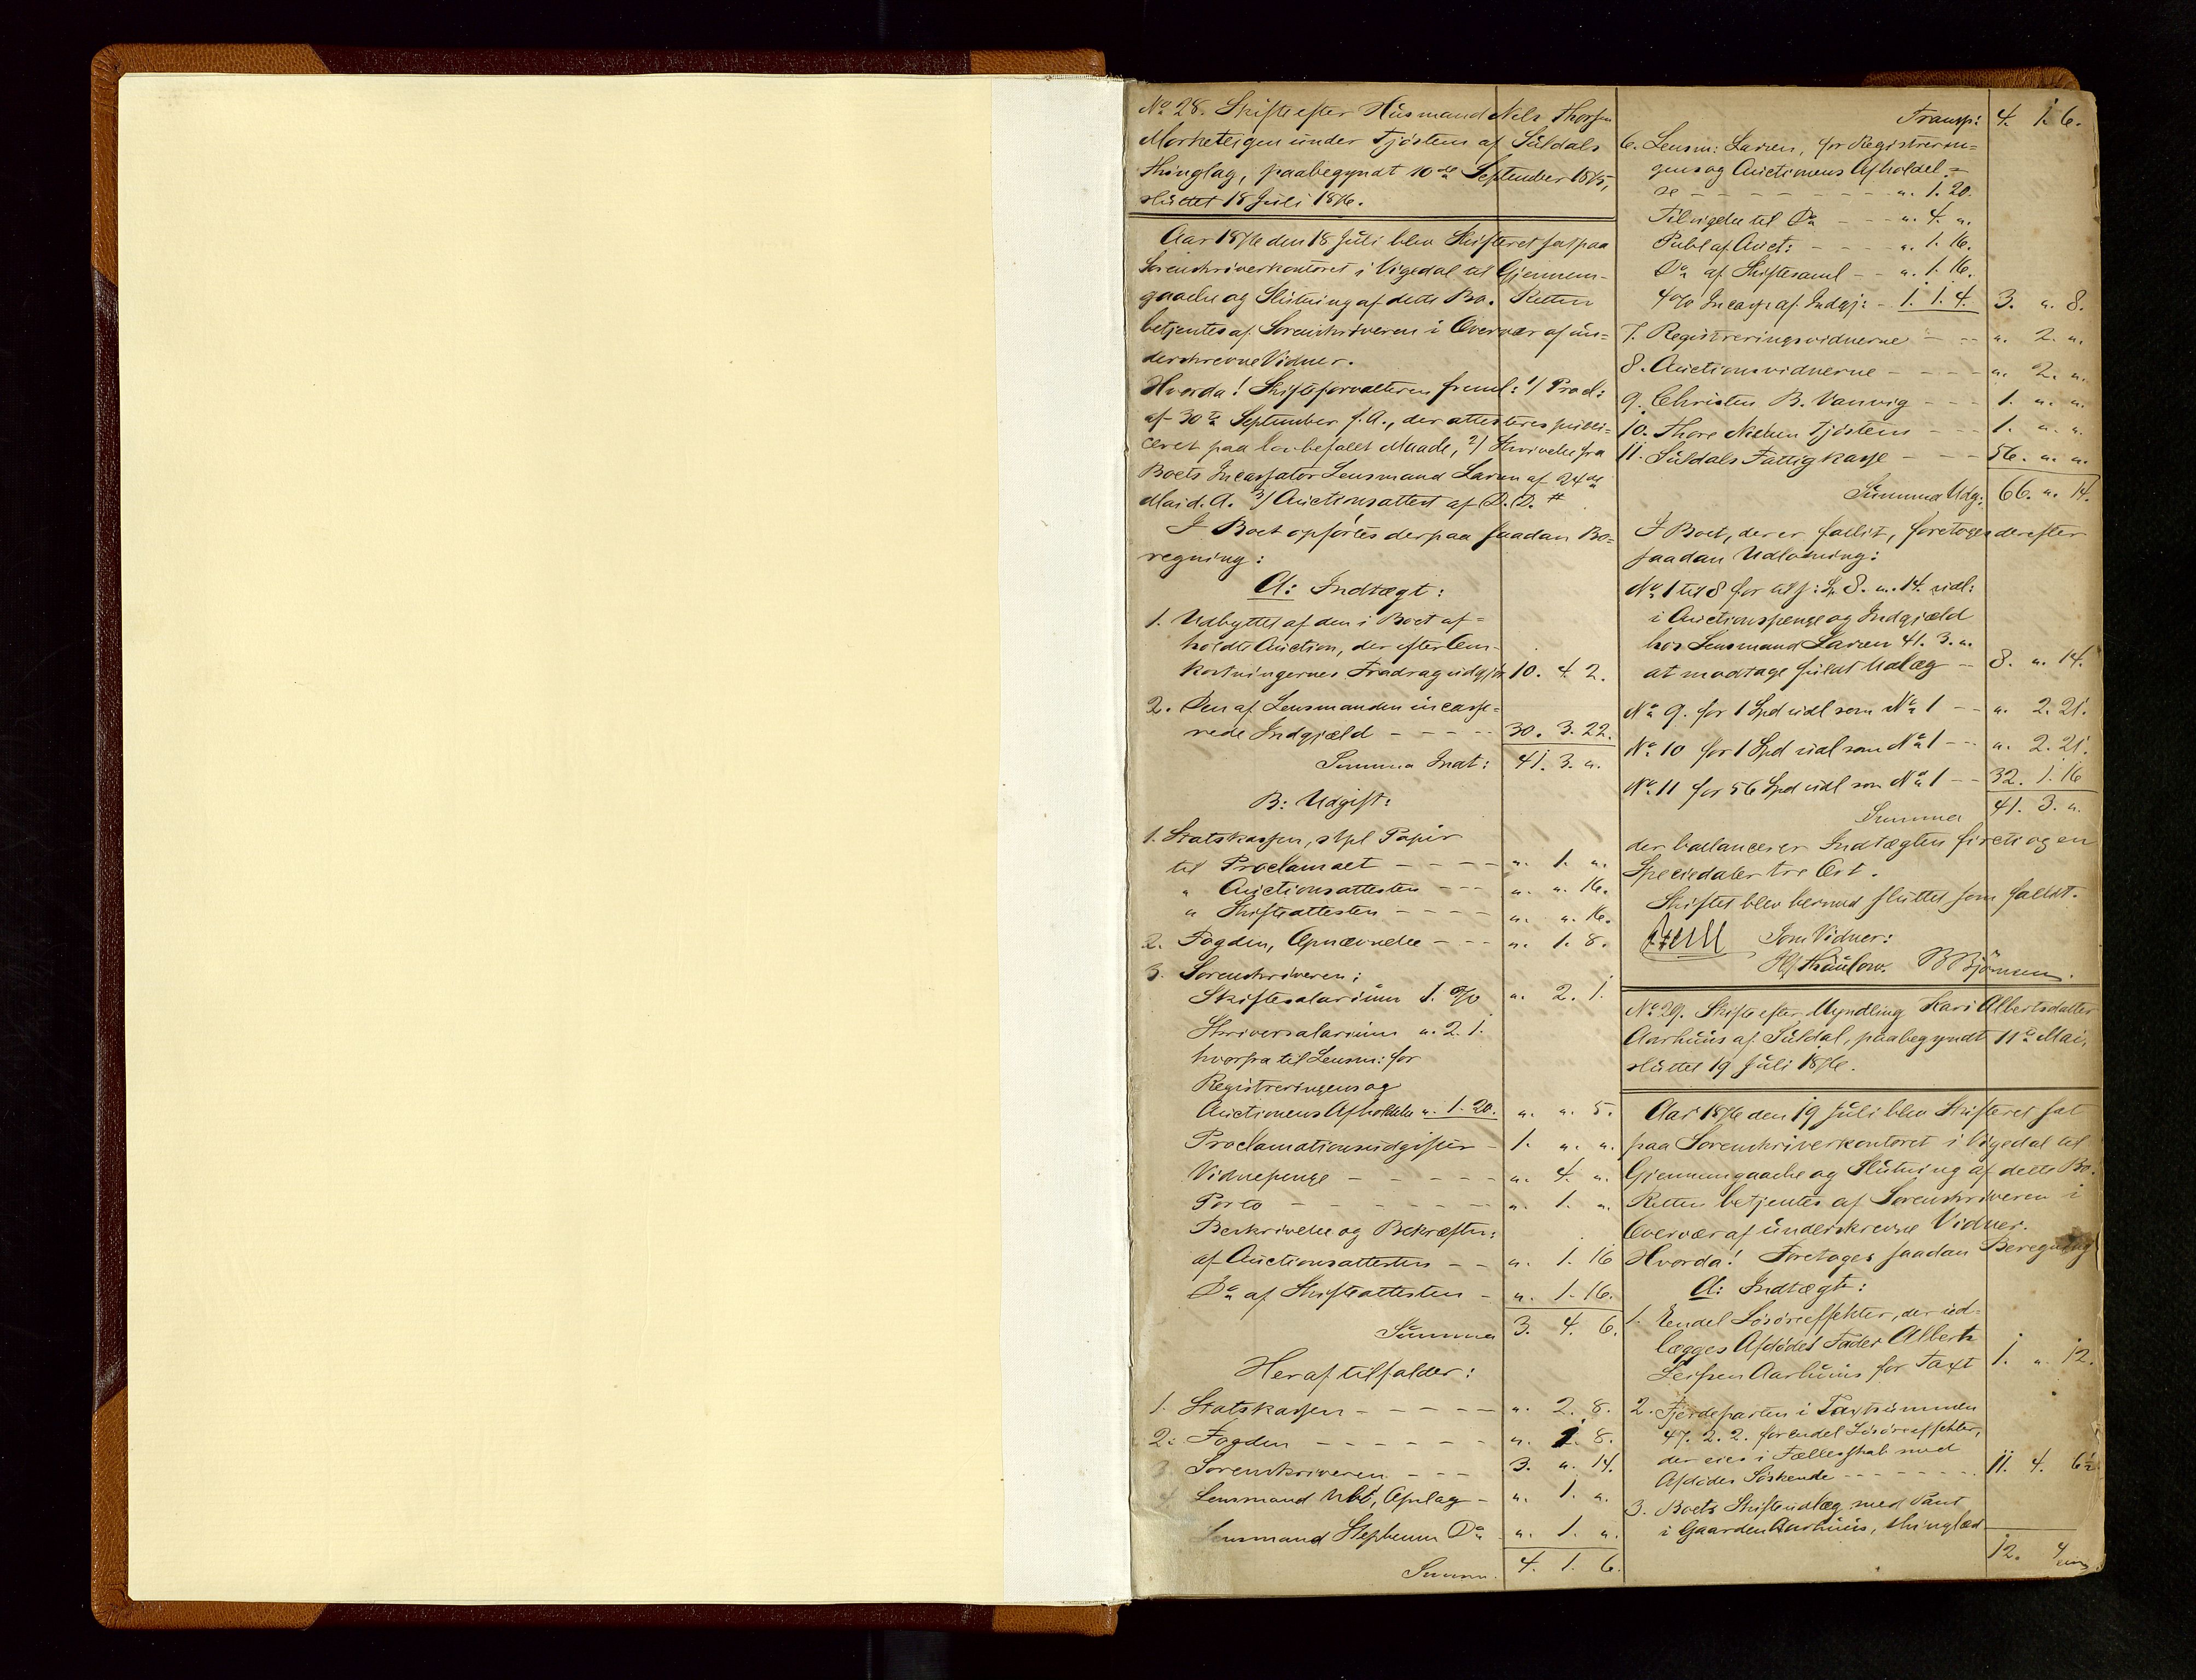 No 28. Skifte efter Husmand Nels Thorsen
Morketeigen under Tjøstem af Suldals
Thinglag, paabegyndt 10de September 1875,
sluttet 18 Juli 1876.
Aar 1876 den 18 Juli blev Skifteret sat paa
Sorenskriverkontoret i Vigedal til Gjennem-
gaaelse og Slutning af dette Bo. Retten
betjentes af Sorenskriveren i Overvær af un-
derskrevne Vidner.
Hvorda! Skifteforvalteren freml: 1/ Procl:
af 30te September f. A., der attesteres publi-
ceret paa lovbefalet Maade, 2/ Skrivelse fra
Boets Incassator Lensmand Larsen af 24de
Mai d. A. 3/ Auctionsattest af D. D. #
I Boet opførtes derpaa saadan Bo-
regning:
A: Indtægt:
1. Udbyttet af den i Boet af-
holdte Auction, der efter Om-
kostningernes Fradrag udgjør 10. 4 2.
2. Den af Lensmanden incasse-
rede Indgjæld - - - - 30. 3. 22.
Summa Indt: 41. 3. „
B: Udgift:
1. Statskassen, stpl Papir
til Proclamaet - - - - „ 1. „
„ Auctionsattesten - - - „ „ 16.
„ Skifteattesten - - - - „ „ 16.
2. Fogden, Opnævnelse - - - „ 1. 8.
3. Sorenskriveren:
Skiftesalarium 1. % „ 2. 1.
Skriversalarium „ 2. 1.
hvorfra til Lensm: for
Registreringens og
Auctionens Afholdelse „ 1. 20. „ „ 5.
Proclamationsudgifter - 1. „ „
Vidnepenge - - - - - „ 4. „
Porto - - - - - - „ 1. „
Beskrivelse og Bekræftn:
af Auctionsattesten - - „ 1. 16
Do af Skifteattesten - „ 1. 16.
Summa 3. 4. 6.
Heraf tilfalder:
1. Statskassen - - - - - „ 2. 8.
2. Fogden - - - - - - „ 1. 8.
3 Sorenskriveren - - - 3. „ 14.
4 Lensmand Opslag - „ 1. „
Lensmand Do „ 1. „
Summa. 4. 1. 6.
Transp: 4. 1. 6.
6. Lensm: Larsen, for Registrerin-
gens og Auctionens Afholdel-
se - - - - - - „ 1. 20.
Tilsigelse til Do - - - „ 4. „
Publ af Auct: - - - - „ 1. 16.
Do af Skiftesaml - - „ 1. 16.
4% Incasso af Indgj: - 1. 1. 4. 3. „ 8.
7. Registreringsvidnerne - - - „ 2. „
8. Auctionsvidnerne - - - - „ 2. „
9. Christen B. Vanvig - - - 1. „ „
10. Thore Nielsen Tjøstem - - - 1. „ „
11. Suldals Fattigkasse - - - 56. „ „
Summa Udg: 66. „ 14.
I Boet, der er fallit, foretoges derefter
saadan Udlodning:
No 1 til 8 for tils: Sp 8. „ 14. udl:
i Auctionspenge og Indgjæld
hos Lensmand Larsen 41. 3. „
at modtage fuldt Udlæg - 8. „ 14.
No 9. for 1 Spd udl som No 1 - - „ 2. 21.
No 10 for 1 Spd udl som No 1 - - „ 2. 21.
No 11 for 56 Spd udl som No 1 - - 32. 1. 16
Summa 41. 3. „
der balancerer Indtægten fireti og en
Speciedaler tre Ort.
Skiftet blev hermed sluttet som fallit.
Som Vidner:
B Bjørnsen.
No 29. Skifte efter Myndling Kari Albertsdatter
Aarhuus af Suldal, paabegyndt 11te Mai,
sluttet 19 Juli 1876.
Aar 1876 den 19 Juli blev Skifteret sat
paa Sorenskriverkontoret i Vigedal til
Gjennemgaaelse og Slutning af dette Bo.
Retten betjentes af Sorenskriveren i
Overvær af underskrevne Vidner.
Hvorda! Foretoges saadan Beregning
A: Indtægt:
1. Endel Løsøreeffekter, der ud-
lægges Afdødes Fader Albert
Aarhuus for Taxt 1. „ 12.
2. Fjerdeparten i Taxtsummen
47. 2. 2. for endel Løsøreeffekter,
der eies i Fællesskab med
Afdødes Søskende - - - - - - 11. 4. 6½
3. Boets Skifteudlæg med Pant
i Gaarden Aarhuus, thinglæst
12. 4